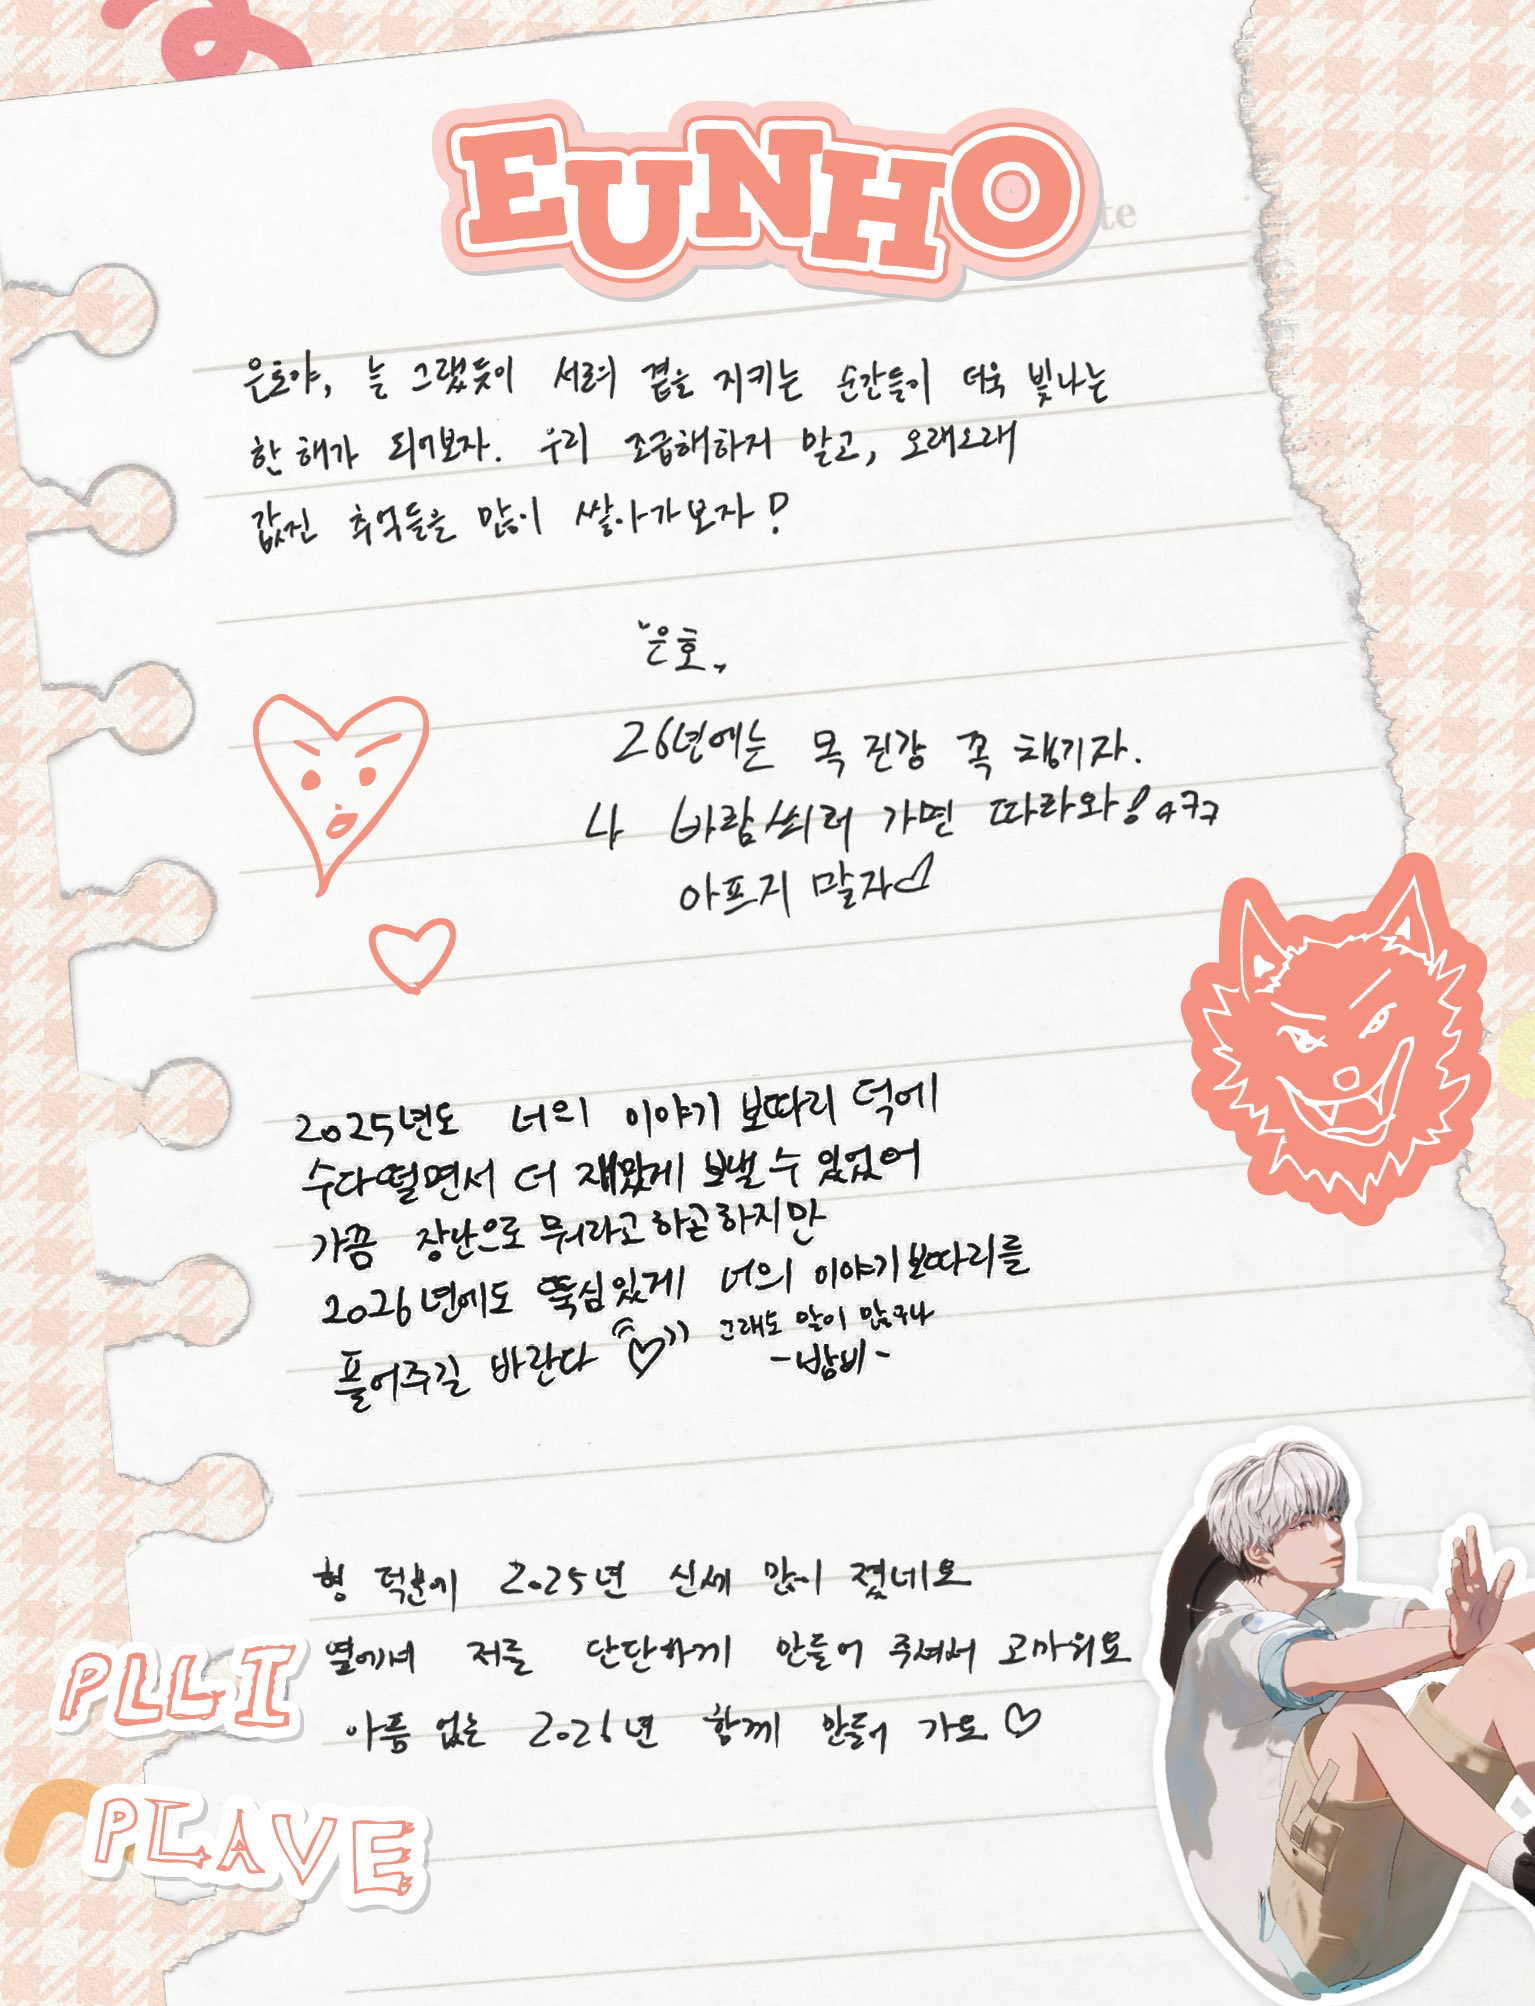 EUNHO
te
은호야, 늘 그랬듯이 서로의 곁을 지키는 순간들이 더욱 빛나는
한 해가 되어보자. 우리 조급해하지 말고, 오래오래
값진 추억들을 많이 쌓아가보자!
"은호„
26년에는 목 건강 꼭 챙기자.
나 바람 쐬러 가면 따라와! ㅋㅋㅋ
아프지 말자♡
2025년도 너의 이야기 보따리 덕에
수다떨면서 더 재밌게 보낼 수 있었어
가끔 장난으로 뭐라고 하곤 하지만
2026년에도 뚝심있게 너의 이야기보따리를
풀어주길 바란다 ♡ 그래도 말이 많구나
-밤비-
형 덕분에 2025년 신세 많이 졌네요
옆에서 저를 단단하게 만들어 주셔서 고마워요
아픔 없는 2026년 함께 만들어 가요♡
PLLI
PLAVE